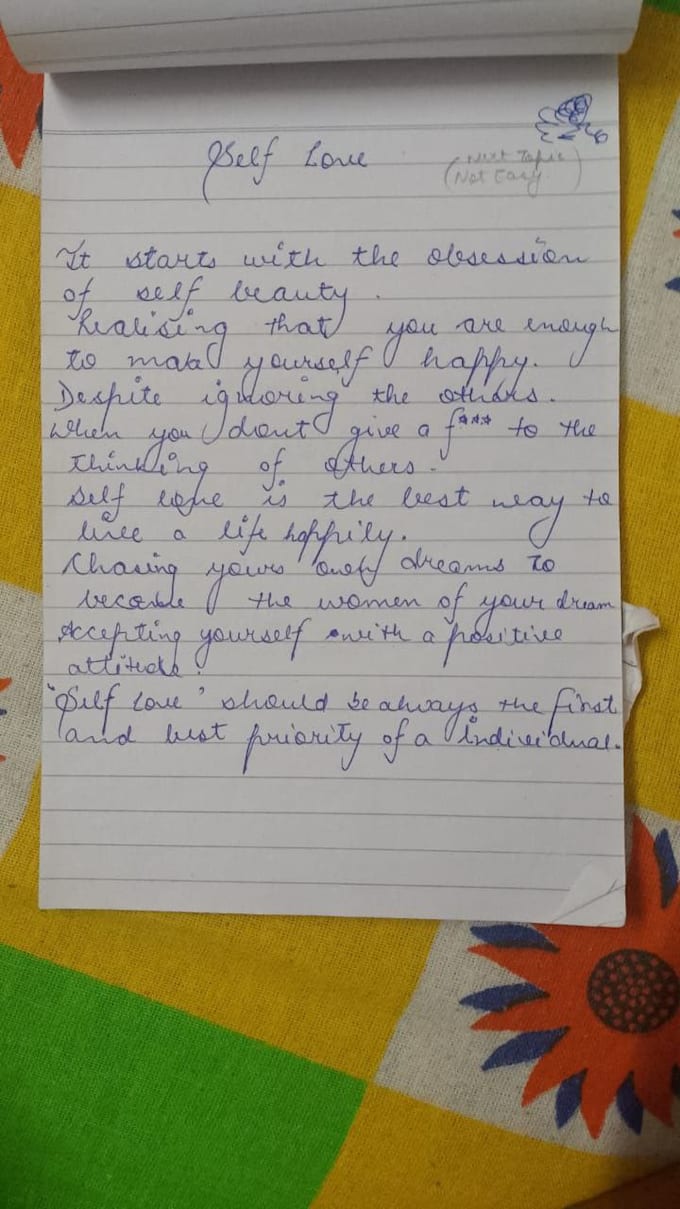 Self Love
(Next Topic
Not Easy)
It starts with the obsession
of self beauty.
Realising that you are enough
to make yourself happy.
Despite ignoring the others.
When you dont give a f*** to the
thinking of others.
Self love is the best way to
live a life happily.
Chasing yours own dreams to
become the women of your dream
Accepting yourself with a positive
attitude.
"Self love" should be always the first
and best priority of a individual.